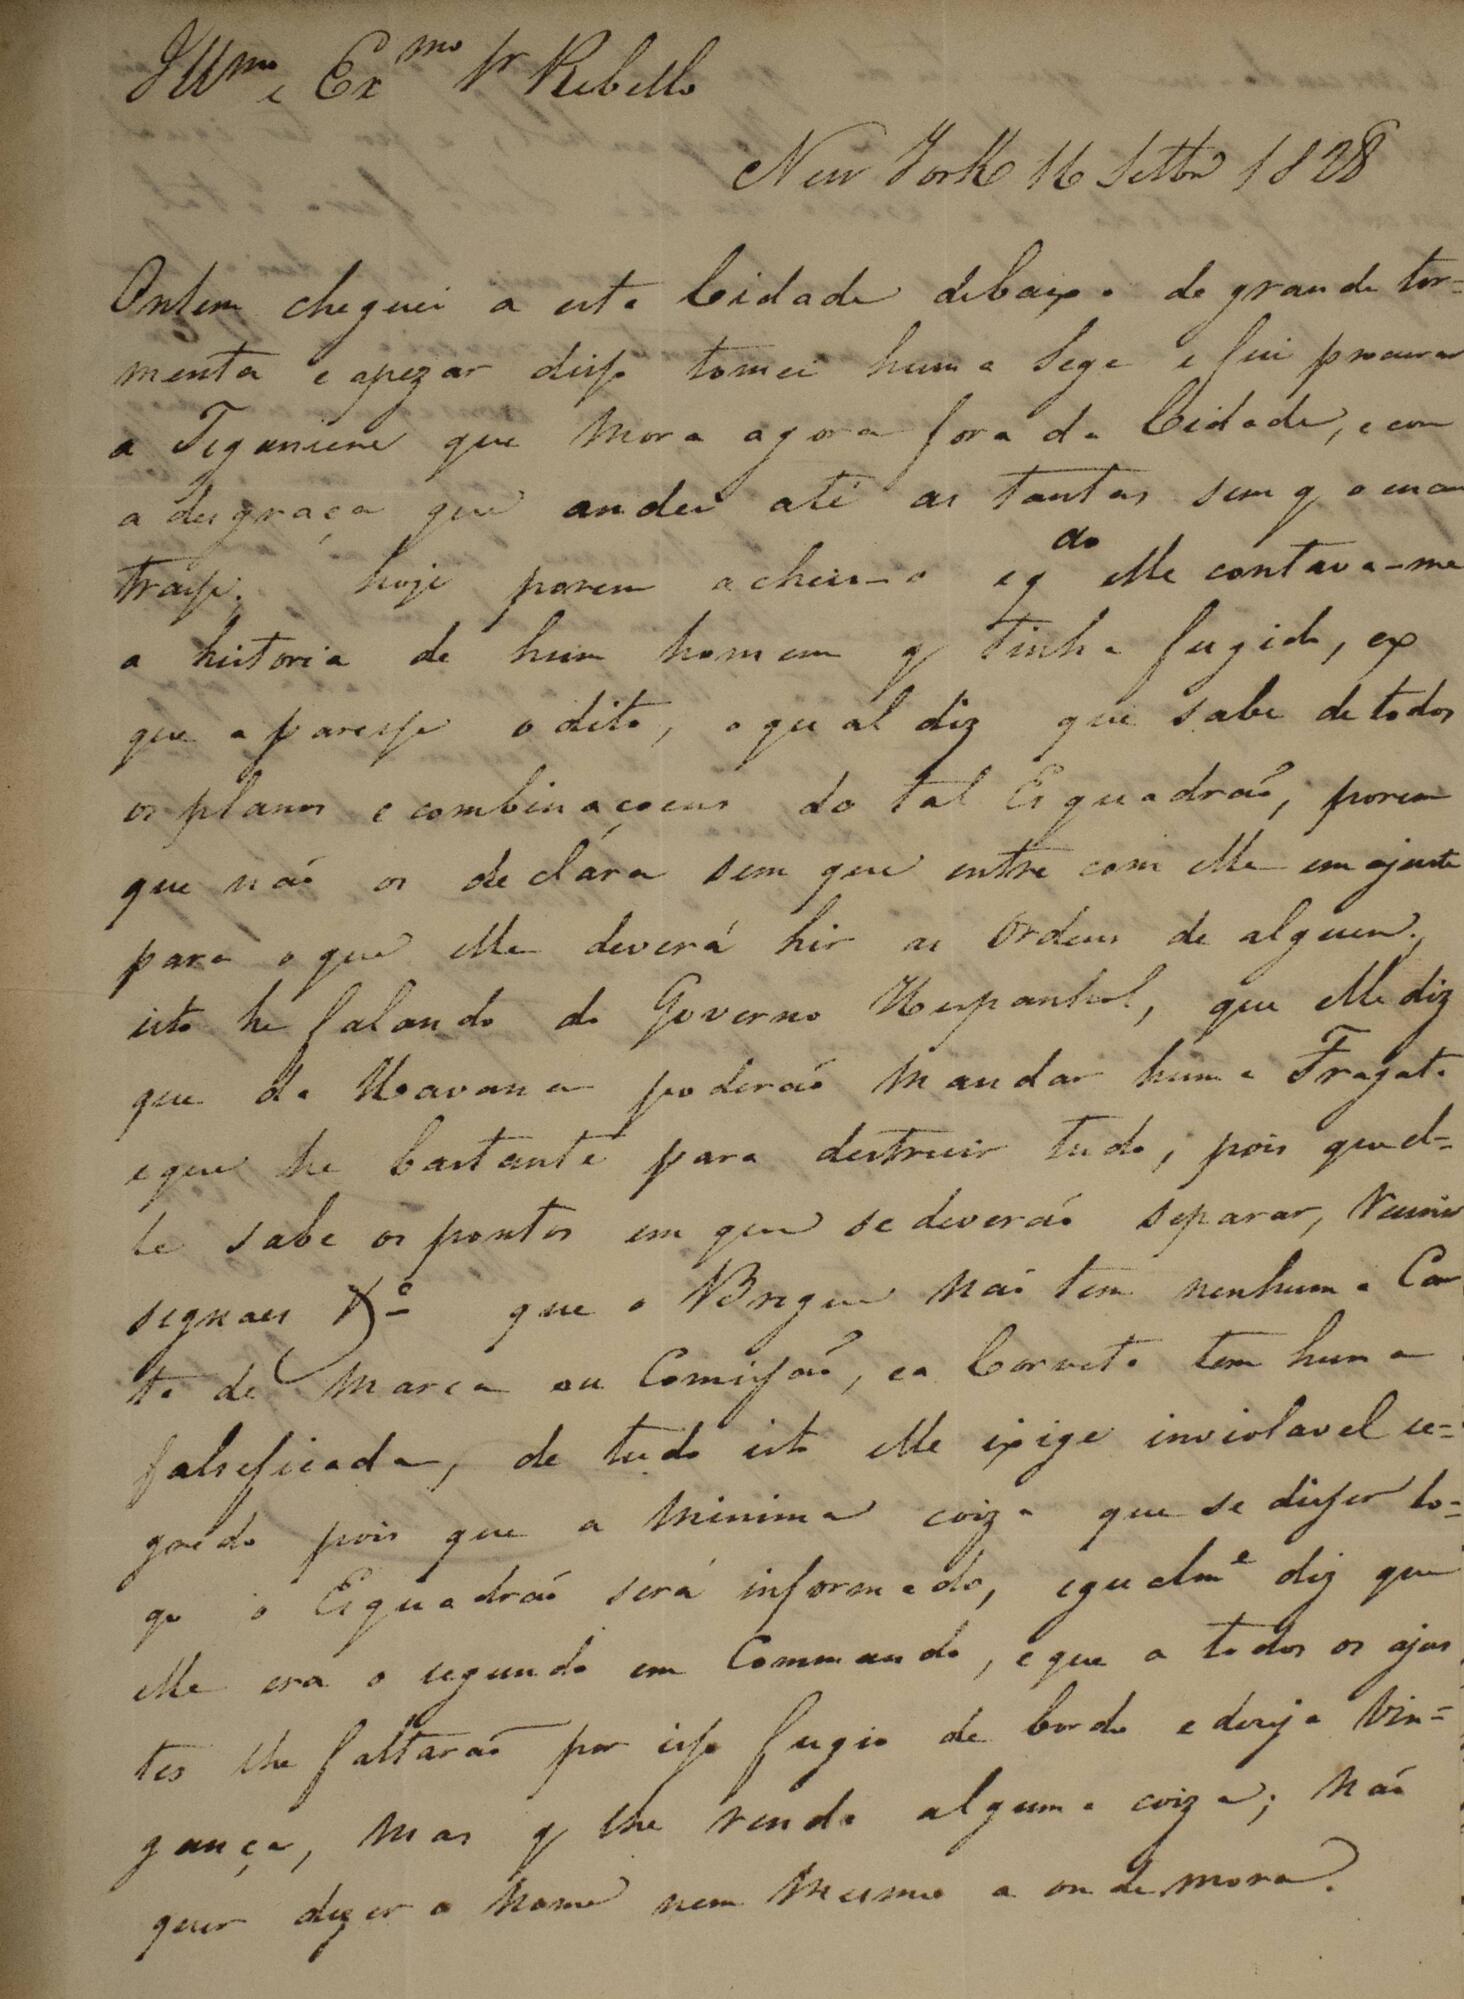 Illmo e Exmo Sr Rebello
New York 16 Settbr 1828
Ontem cheguei a esta Cidade debaixo de grande tor=
menta e apezar disso tomei huma Sege e fui procurar
a Teganiere que mora agora fora da Cidade, e com
a desgraça que andei até as tantas sem q o encon
trasse. hoje porem achei-o e qdo elle contava-me
a historia de hum homem q tinha fugido, ex
que aparesse o dito, o qual diz que sabe de todos
os planos e combinaçoens do tal Esquadraõ, porem
que naõ os declára sem que entre com elle em ajuste
para o que elle deverá hir as Ordens de alguem,
isto he falando do Governo Hespanhol, que elle diz
que da Havana poderaõ mandar huma Fragata
e que he bastante para destruir tudo, pois que el=
le sabe os pontos em que se deveraõ separar, reunir
segnaes &ª que o Brigue naõ tem nenhuma Car
ta de Marca ou Comissaõ, e a Corveta tem huma
falseficada, de tudo isto elle exige inviolavel se=
gredo pois que a minima coiza que se disser lo=
go o Esquadraõ será informado, egualme diz que
elle era o segundo em Commando, e que a todos os ajus
tes lhe faltaraõ por isso fugio de bordo e deseja vin=
gança, mas q lhe renda alguma coiza; naõ
quer dizer o nome nem mesmo a onde mora.